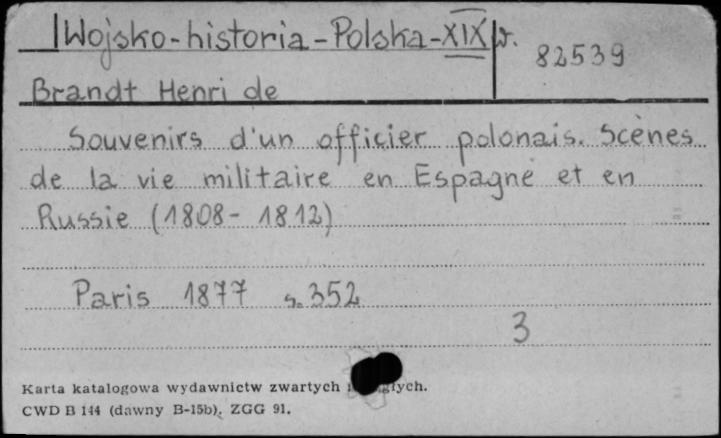 Wojsko-historia-Polska-XIX w.
82539
Brandt Henri de
Souvenirs d'un officier polonais. Scènes
de la vie militaire en Espagne et en
Russie (1808-1812)
Paris 1877 s. 352
3
Karta katalogowa wydawnictw zwartych
CWD B 144 (dawny B-15b), ZGG 91.